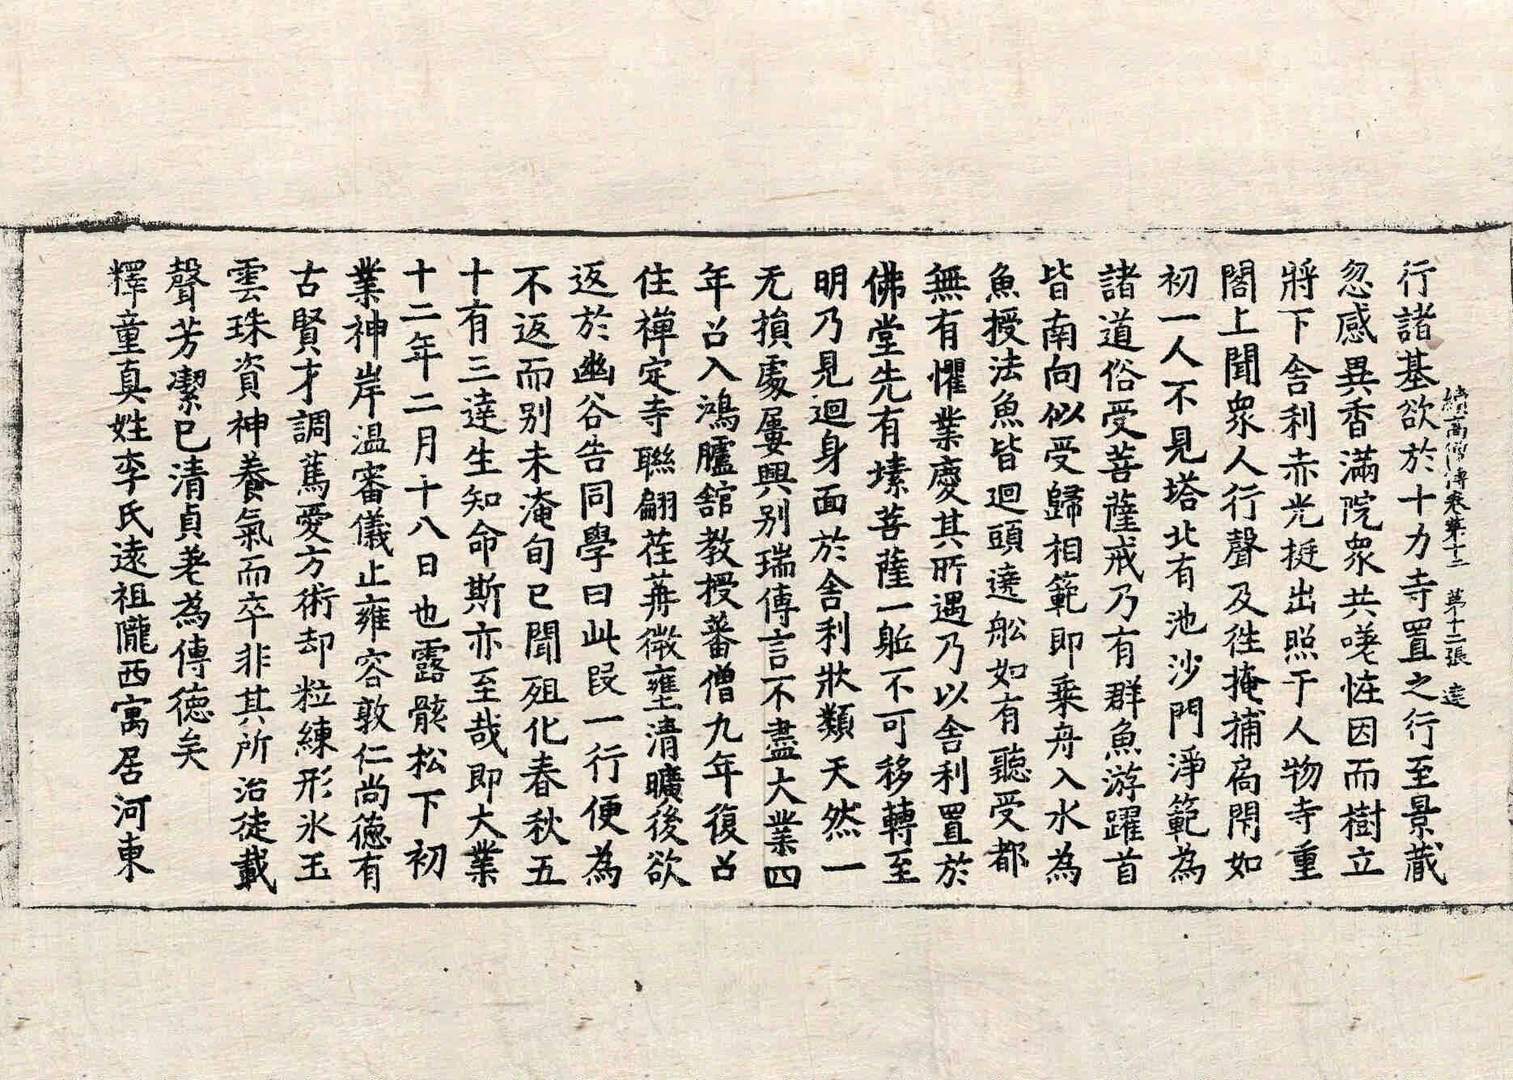 續高僧傳卷第十二 第十二張 達
行諸基欲於十力寺置之行至景藏
忽感異香滿院眾共嗟恠因而樹立
將下舍利赤光挺出照于人物寺重
閣上聞眾人行聲及徃掩捕扄閇如
初一人不見塔北有池沙門淨範為
諸道俗受菩薩戒乃有群魚游躍首
皆南向似受歸相範即乘舟入水為
魚授法魚皆迴頭遶舩如有聽受都
無有懼業慶其所遇乃以舍利置於
佛堂先有塐菩薩一軀不可移轉至
明乃見迴身面於舍利狀類天然一
无損處屢興別瑞傳言不盡大業四
年召入鴻臚舘教授蕃僧九年復召
住禪定寺聯翩荏苒微壅清曠後欲
返於幽谷告同學曰此段一行便為
不返而別未淹旬已聞殂化春秋五
十有三達生知命斯亦至哉即大業
十二年二月十八日也露骸松下初
業神岸温審儀止雍容敦仁尚德有
古賢才調篤愛方術却粒練形氷玉
雲珠資神養氣而卒非其所治徒載
聲芳潔已清貞著為傳德矣
釋童真姓李氏遠祖隴西寓居河東